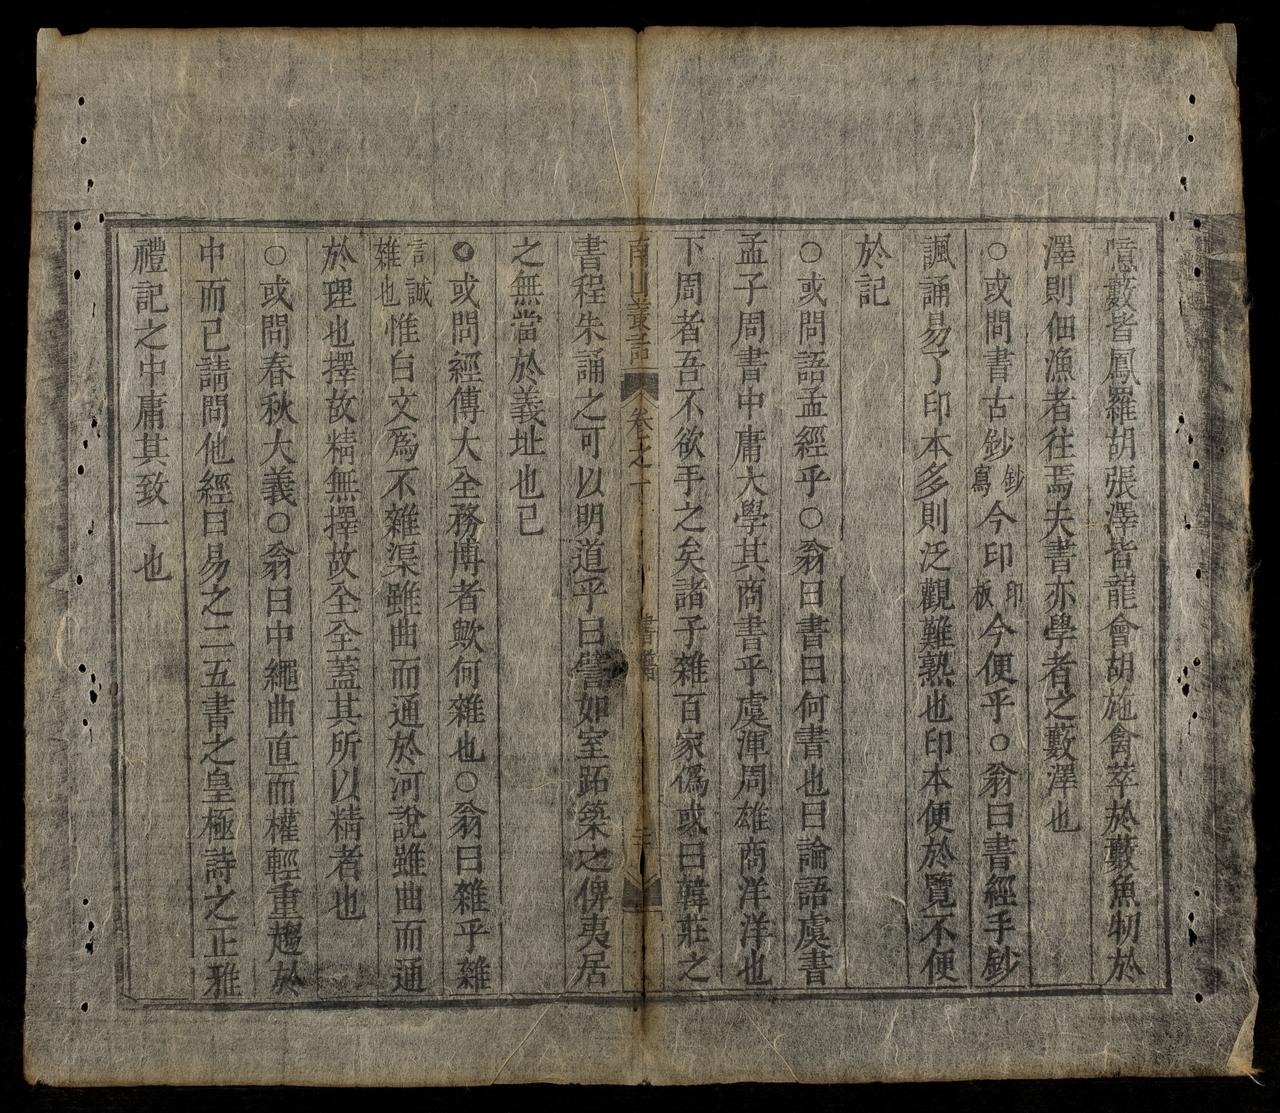 噫藪皆鳳羅胡張澤皆龍會胡施禽萃於藪魚牣於
澤則佃漁者往焉夫書亦學者之藪澤也
○或問書古鈔鈔寫今印印板今便乎○翁曰書經手鈔
諷誦易了印本多則泛觀難熟也印本便於覽不便
於記
○或問語孟經乎○翁曰書曰何書也曰論語虞書
孟子周書中庸大學其商書乎虞渾周雄商洋洋也
下周者吾不欲手之矣諸子雜百家僞或曰韓莊之
南山叢話 卷之一 書籍
書程朱誦之可以明道乎曰譬如室跖築之俾夷居
之無當於義址也已
○或問經傳大全務博者歟何雜也○翁曰雜乎雜
言誠雜也惟白文爲不雜渠雖曲而通於河說雖曲而通
於理也擇故精無擇故全全蓋其所以精者也
○或問春秋大義○翁曰中繩曲直而權輕重趨於
中而已請問他經曰易之二五書之皇極詩之正雅
禮記之中庸其致一也